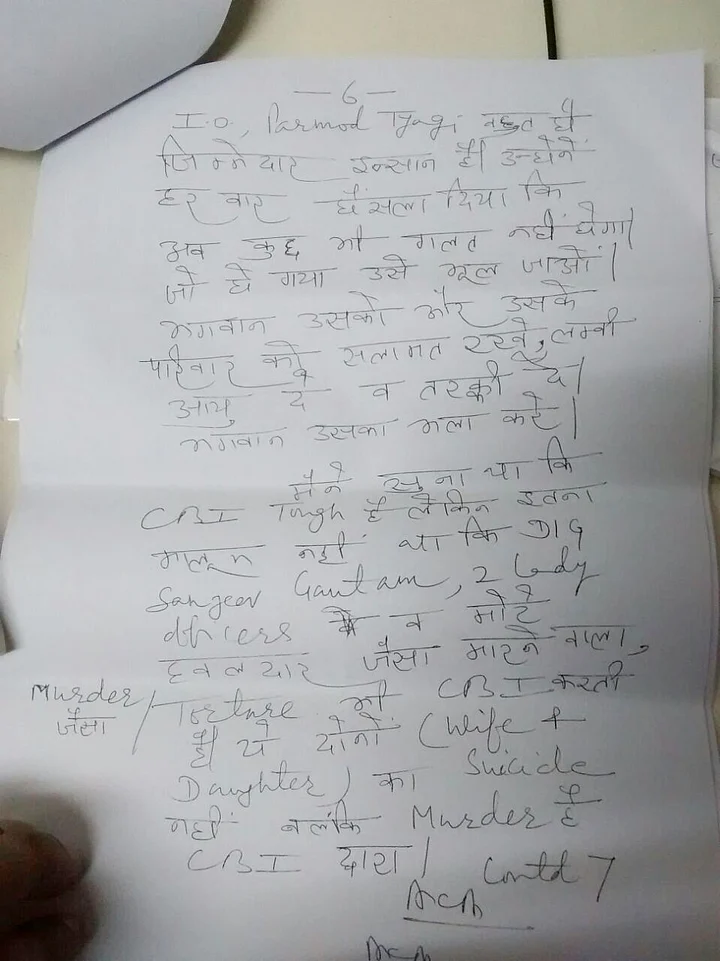 — 6 —
I.O., Parmod Tyagi बहुत ही
जिम्मेदार इन्सान है। उन्होंने
हर बार हौंसला दिया कि
अब कुछ भी गलत नहीं होगा।
जो हो गया उसे भूल जाओं।
भगवान उसको और उसके
परिवार को सलामत रखे, लम्बी
आयु दे व तरक्की दे।
भगवान उसका भला करे।
मैंने सुना था कि
CBI Tough है लेकिन इतना
मालूम नहीं था कि DIG
Sanjeev Gautam, 2 Lady
officers व मोटे
हवलदार जैसा मारने वाला,
Murder जैसा / Torture भी CBI करती
है। ये दोनों (Wife &
Daughter) का Suicide
नहीं बलंकि Murder है
CBI द्वारा।
Contd 7